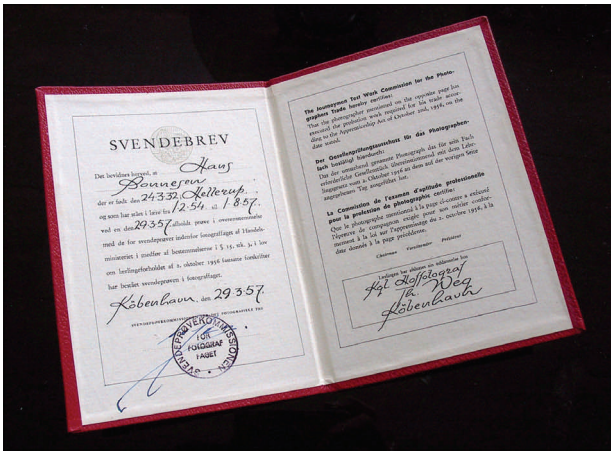 SVENDEBREV
Det bevidnes herved, at Hans
Bonnesen
der er født 24332, Hellerup,
og som har stået i lære fra 1.2.54. til 1.8.57.
ved en den 29.3.57. afholdt prøve i overensstemmelse
med de for svendeprøver indenfor fotograffaget af Handels-
ministeriet i medfør af bestemmelserne i § 15, stk. 3, i lov
om lærlingeforholdet af 2. oktober 1956 fastsatte forskrifter
har bestået svendeprøven i fotograffaget.
København, den 29.3.57.
SVENDEPRØVEKOMMISSIONEN
FOR
FOTOGRAF
FAGET
The Journeymen Test Work Commission for the Photo-
graphers Trade hereby certifies:
That the photographer mentioned on the opposite page has
executed the probation work required for his trade accor-
ding to the Apprenticeship Act of October 2nd, 1956, on the
date stated.
Der Gesellenprüfungsausschuss für das Photographen-
fach bestätigt hierdurch:
Dass der umstehend genannte Photograph das für sein Fach
erforderliche Gesellenstück übereinstimmend mit dem Lehr-
lingsgesetz vom 2. Oktober 1956 an dem auf der vorigen Seite
angegebenen Tag ausgeführt hat.
La Commission de l'examen d'aptitude professionelle
pour la profession de photographie certifie:
Que le photographe mentionné à la page ci-contre a exécuté
l'épreuve de compagnon exigée pour son métier confor-
mément à la loi sur l'apprentissage du 2. octobre 1956, à la
date donnée à la page précédente.
Chairman Vorsitzender Président
Lærlingen har afsluttet sin uddannelse hos:
Kgl. Hoffotograf
Th. Weg
København